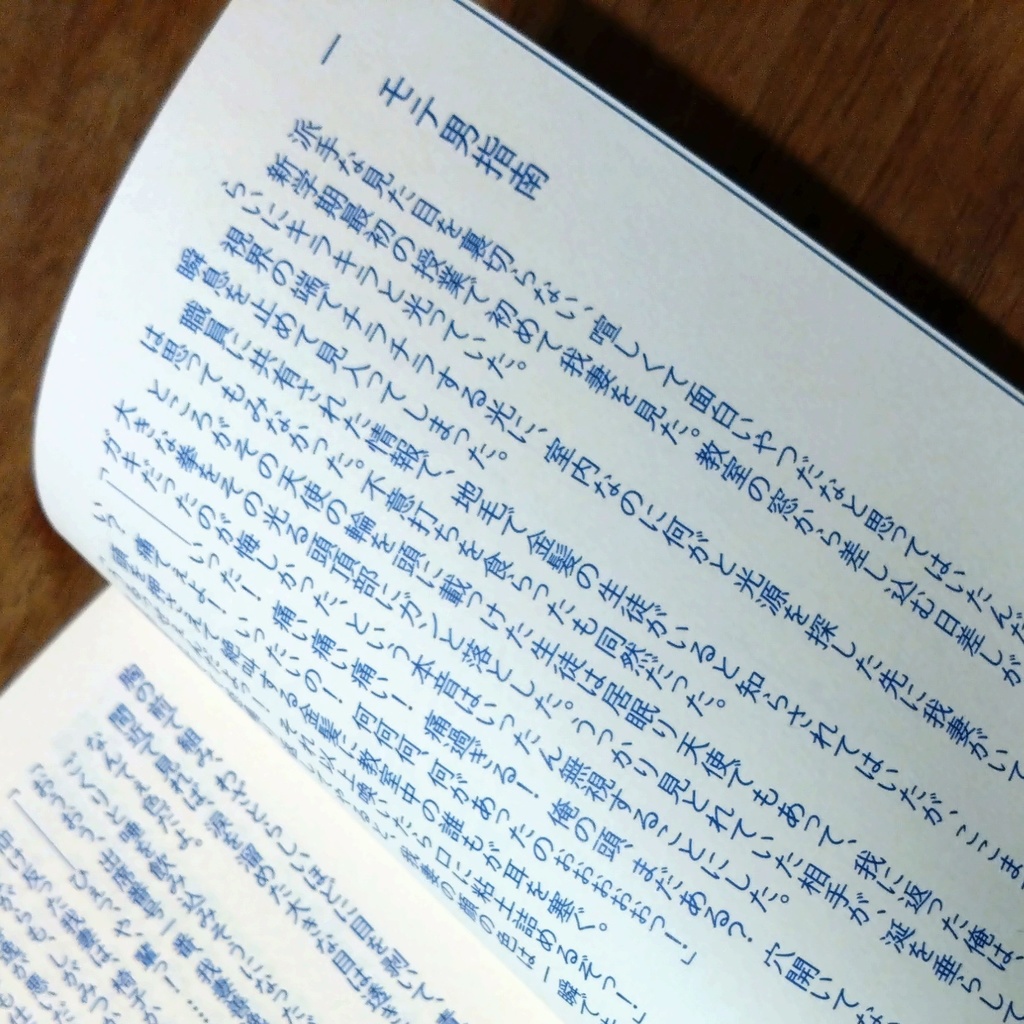 一
モテ男指南
派手な見た目を裏切らない、喧しくて面白いやつだなと思ってはいたんだ
新学期最初の授業で初めて我妻を見た。教室の窓から差し込む日差しが
ら、にキラキラと光っていた。
視界の端でチラチラする光に、室内なのに何がと光源を探した先に我妻がいて
瞬息を止めて見入ってしまった。
職員に共有された情報で、地毛で金髪の生徒がいると知らされてはいたが、ここま
は思ってもみなかった。不意打ちを食らったも同然だった。
ところがその天使の輪を頭に載っけた生徒は居眠り天使でもあって、我に返った俺は、
大きな拳をその光る頭頂部にガンと落とした。うっかり見とれていた相手が、涎を垂らして
ガキだったのが悔しかった、という本音はいったん無視することにした。
「――いった!痛い痛い痛い!痛過ぎる!俺の頭、まだある?穴開いてな
い?痛てぇよー!いったいの!何何何、何があったのおおおおっ!」
頭を押さえて絶叫する金髪に教室中の誰もが耳を塞ぐ。
それ以上喚いたら口に粘土詰めるぞっ!」
我妻の顔の色は一瞬で
胸の前で組み、わざとらしいほどに目を剥いて、
間近で見れば、涙を溜めた大きな目は透き
なんてぇ色だよ。
ごくりと唾を飲み込みそうになった
「おうおう、出席番号一番、我妻善
「――ひぇっ、や、輩っ!……
仰け反った我妻は、椅子か